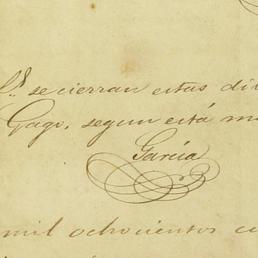 se cierran estas
Gago, segun está
García
mil ochocientos